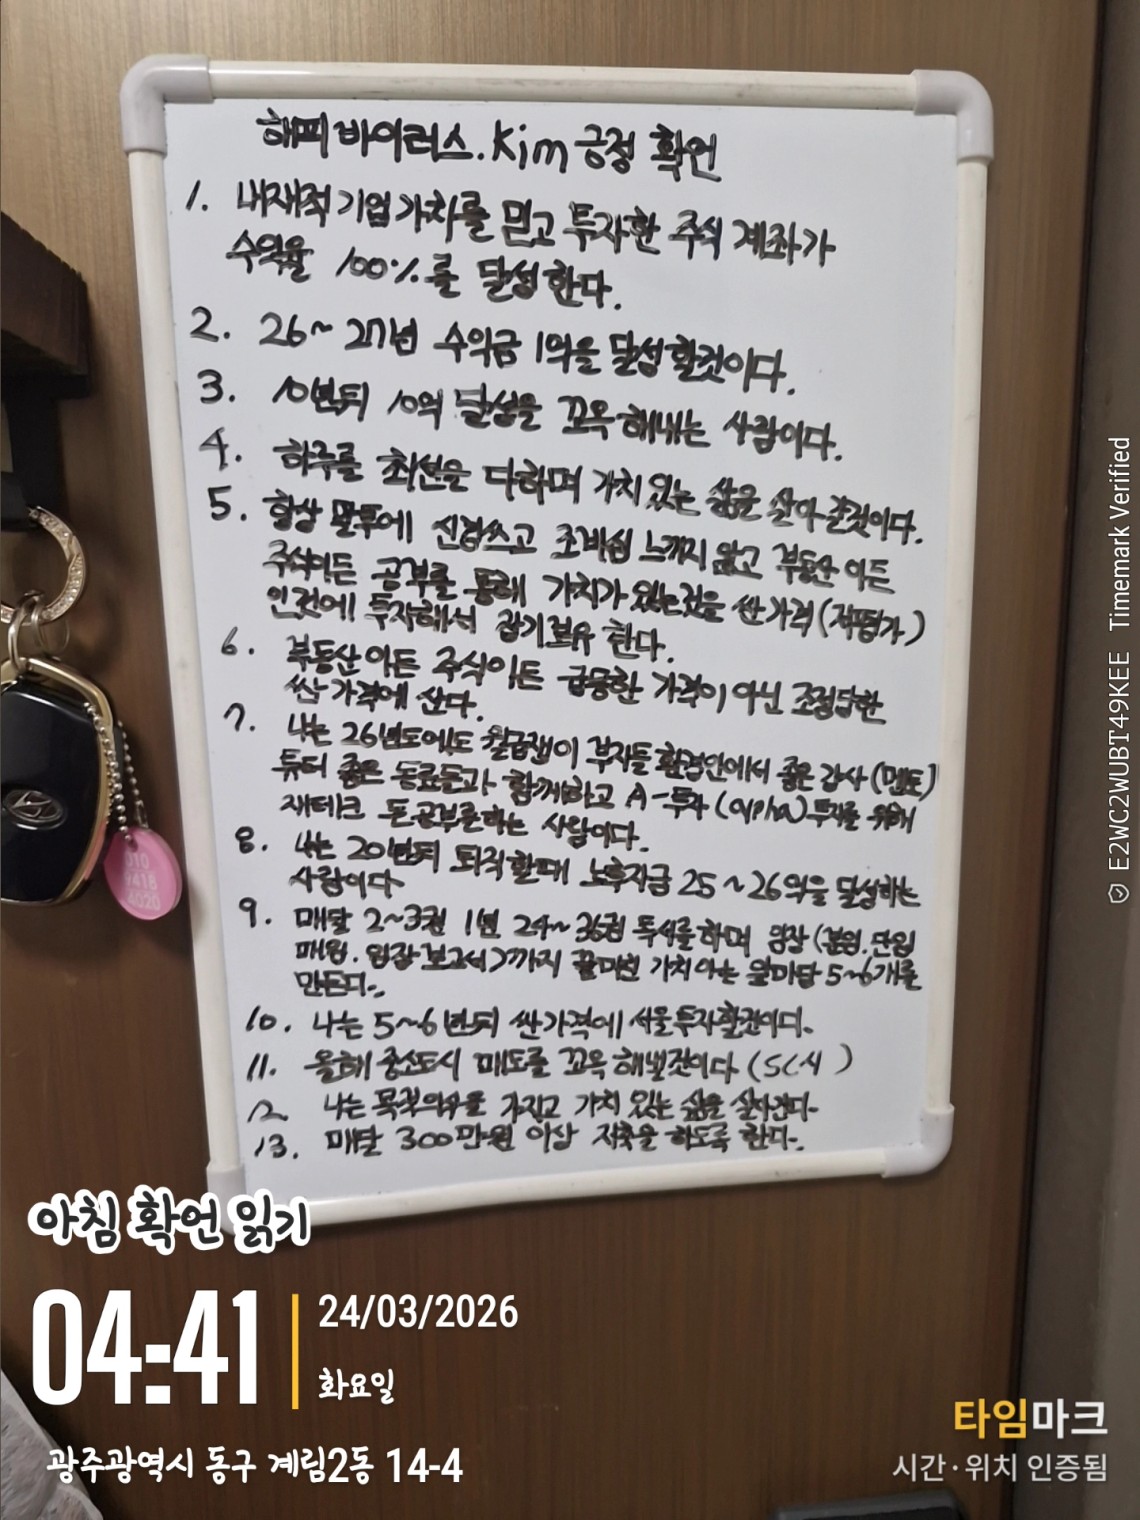 해피바이러스.Kim 긍정 확언
1. 내재적 기업가치를 믿고 투자한 주식 계좌가
수익율 100%를 달성한다.
2. 26~27년 수익금 1억을 달성할것이다.
3. 10년뒤 10억 달성을 꼬옥 해내는 사람이다.
4. 하루를 최선을 다하며 가치있는 삶을 살아갈것이다.
5. 항상 말투에 신경쓰고 조바심 느끼지 않고 부동산 이든
주식이든 공부를 통해 가치가 있는것을 싼가격(저평가)
인것에 투자해서 장기보유 한다.
6. 부동산이든 주식이든 급등한 가격이 아닌 조정당한
싼가격에 산다.
7. 나는 26년도에도 월급쟁이 부자들 환경안에서 좋은 강사(멘토)
튜터 좋은 동료들과 함께하고 A-투자(alpha)투자를 위해
재테크 돈공부를하는 사람이다.
8. 나는 20년뒤 퇴직할때 노후자금 25~26억을 달성하는
사람이다
9. 매달 2~3권 1년 24~36권 독서를 하며 임장(분임.단임
매임.임장보고서)까지 앞마당 5~6개를
만든다.
10. 나는 5~6년뒤 싼가격에 서울투자할것이다.
11. 올해 중소도시 매도를 꼬옥 해낼것이다
12 나는 목적의식을 가지고 가치 있는 삶을 살아간다.
13. 매달 300만원 이상 저축을 하도록 한다.
010
9418
4020
아침 확언 읽기
04:41
24/03/2026
화요일
광주광역시 동구 계림2동 14-4
타임마크
시간·위치 인증됨
E2WC2WUBT49KEE Timemark Verified